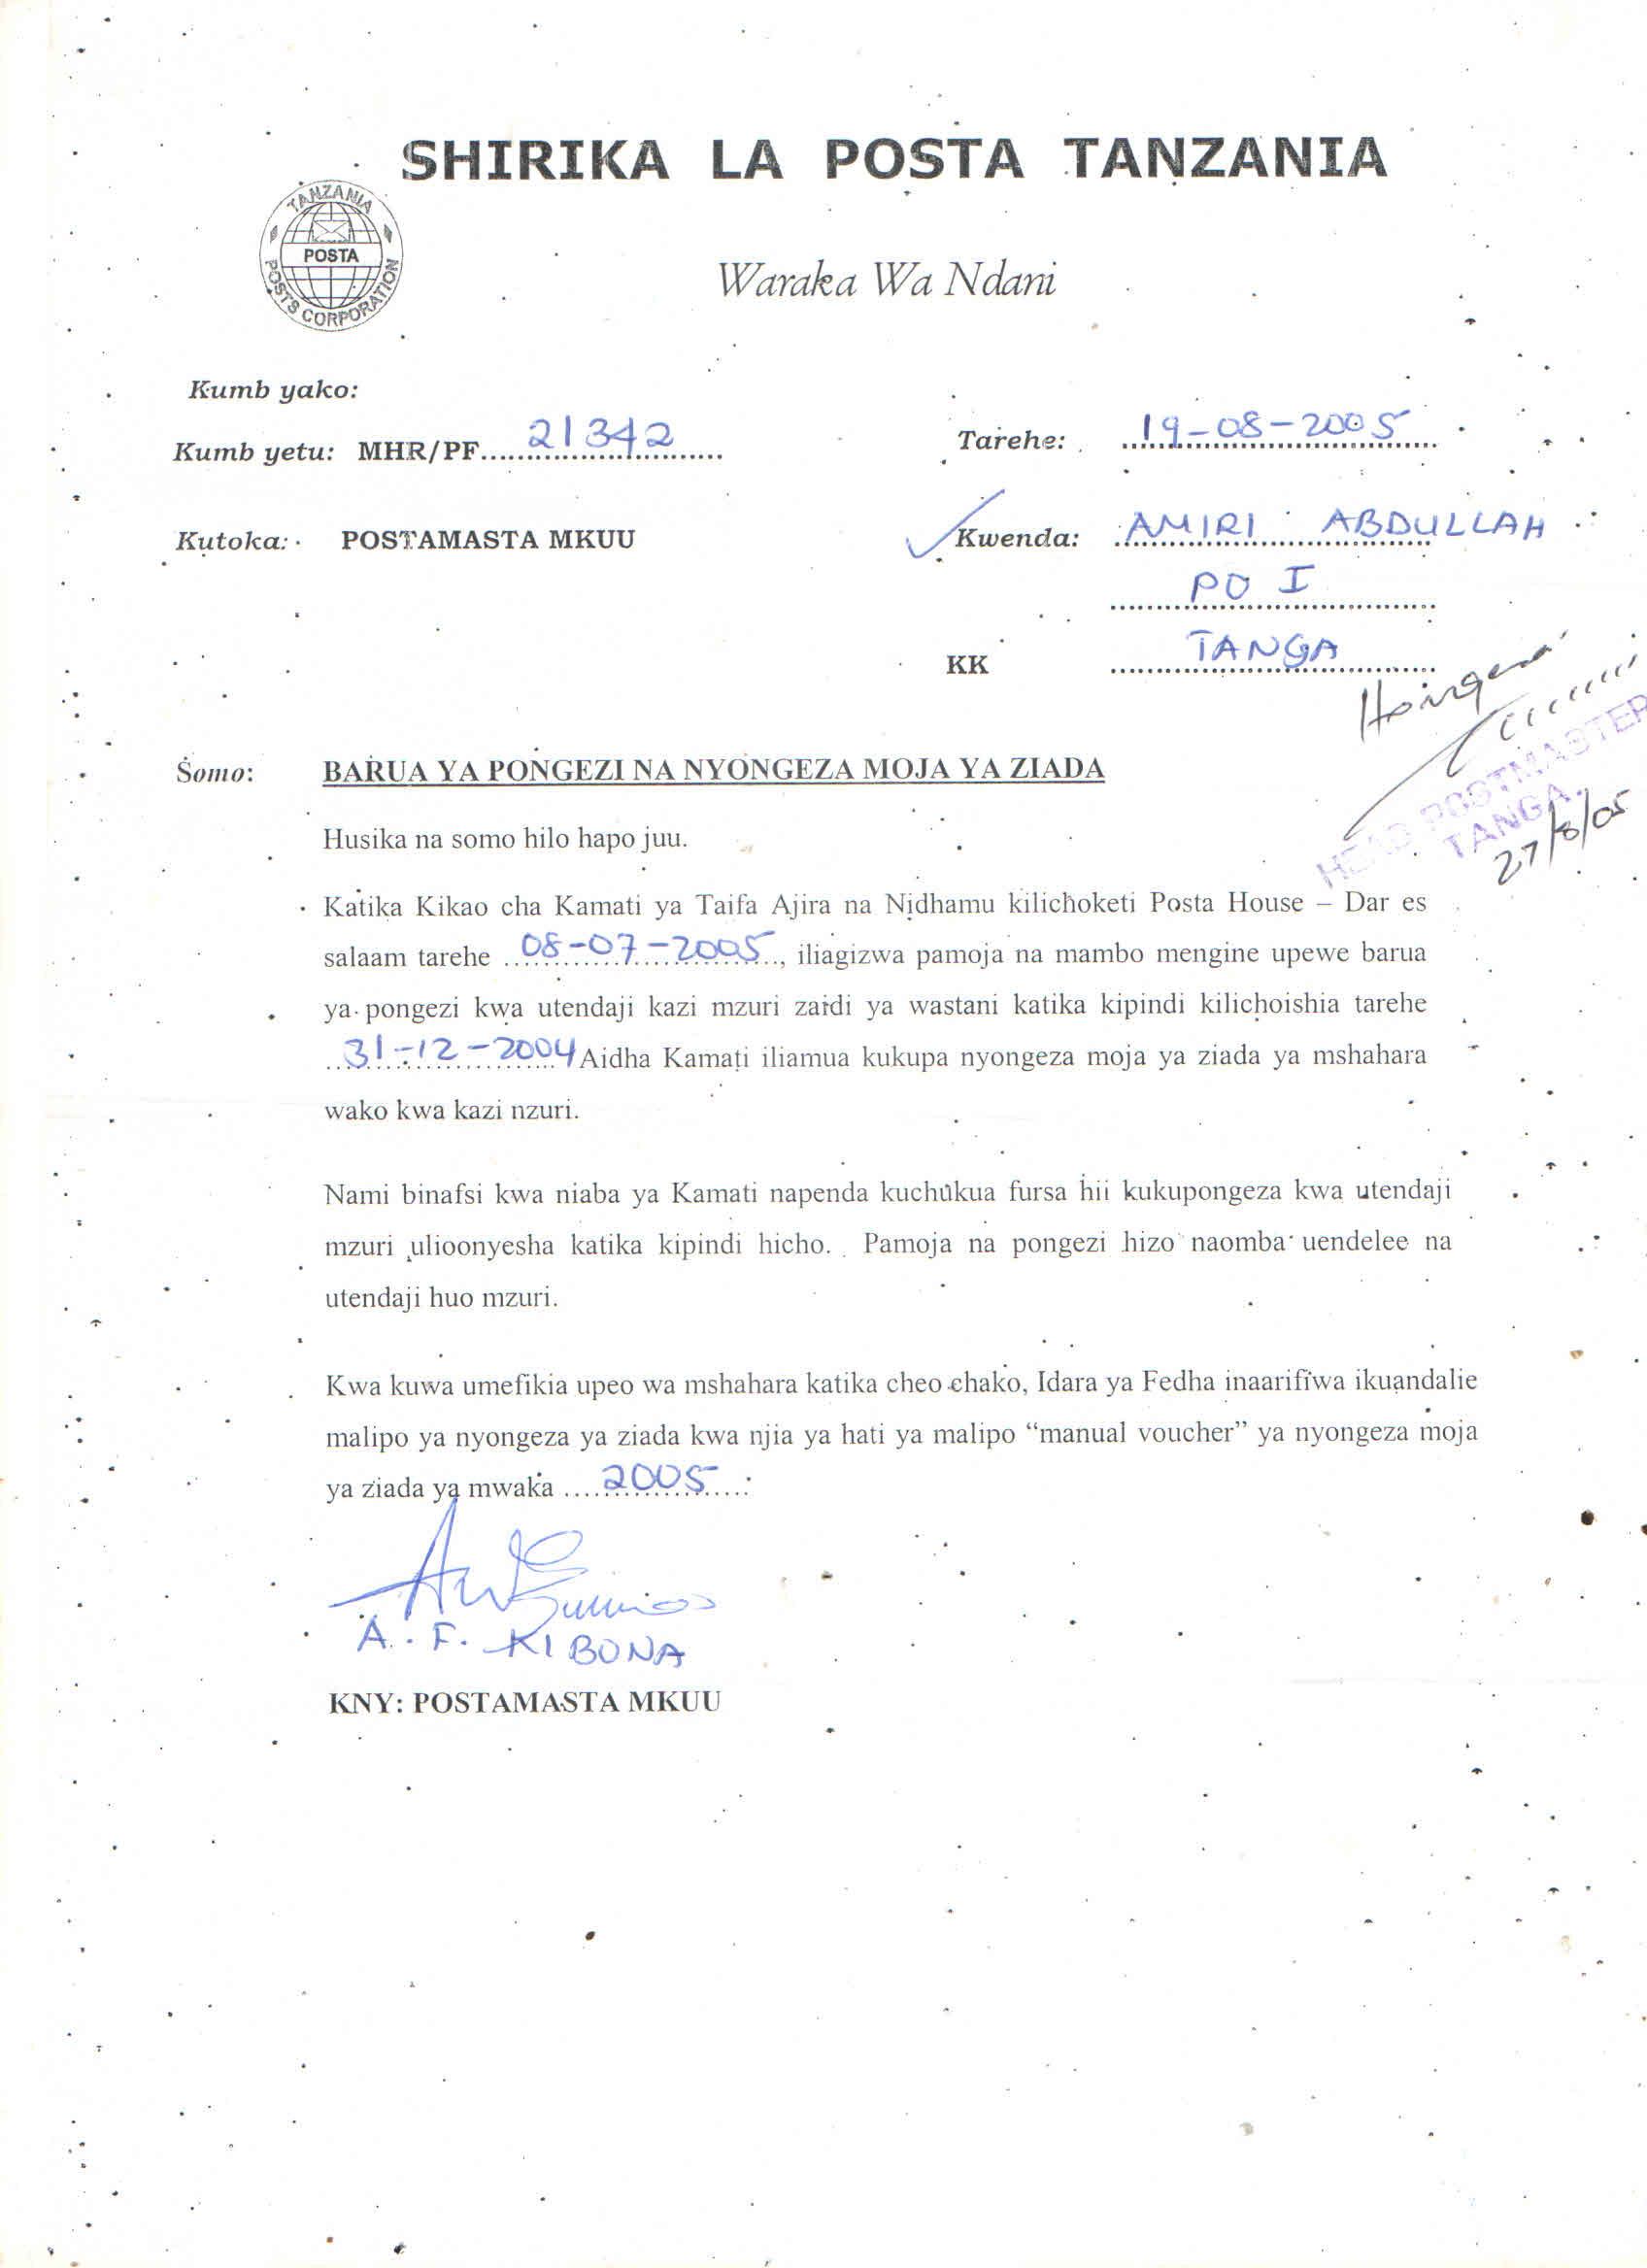 SHIRIKA LA POSTA TANZANIA
TANZANIA
POSTA
POSTS CORPORATION
Waraka Wa Ndani
Kumb yako:
Kumb yetu: MHR/PF....21342....
Tarehe: 19-08-2005
Kutoka: POSTAMASTA MKUU
Kwenda: AMIRI ABDULLAH
PO I
KK TANGA
Hongera
HEAD POSTMASTER
TANGA.
27/8/05
Somo: BARUA YA PONGEZI NA NYONGEZA MOJA YA ZIADA
Husika na somo hilo hapo juu.
Katika Kikao cha Kamati ya Taifa Ajira na Nidhamu kilichoketi Posta House – Dar es
salaam tarehe ...08-07-2005..., iliagizwa pamoja na mambo mengine upewe barua
ya pongezi kwa utendaji kazi mzuri zaidi ya wastani katika kipindi kilichoishia tarehe
...31-12-2004 Aidha Kamati iliamua kukupa nyongeza moja ya ziada ya mshahara
wako kwa kazi nzuri.
Nami binafsi kwa niaba ya Kamati napenda kuchukua fursa hii kukupongeza kwa utendaji
mzuri ulioonyesha katika kipindi hicho. Pamoja na pongezi hizo naomba uendelee na
utendaji huo mzuri.
Kwa kuwa umefikia upeo wa mshahara katika cheo chako, Idara ya Fedha inaarifiwa ikuandalie
malipo ya nyongeza ya ziada kwa njia ya hati ya malipo “manual voucher” ya nyongeza moja
ya ziada ya mwaka ....2005....
A. F. KIBONA
KNY: POSTAMASTA MKUU